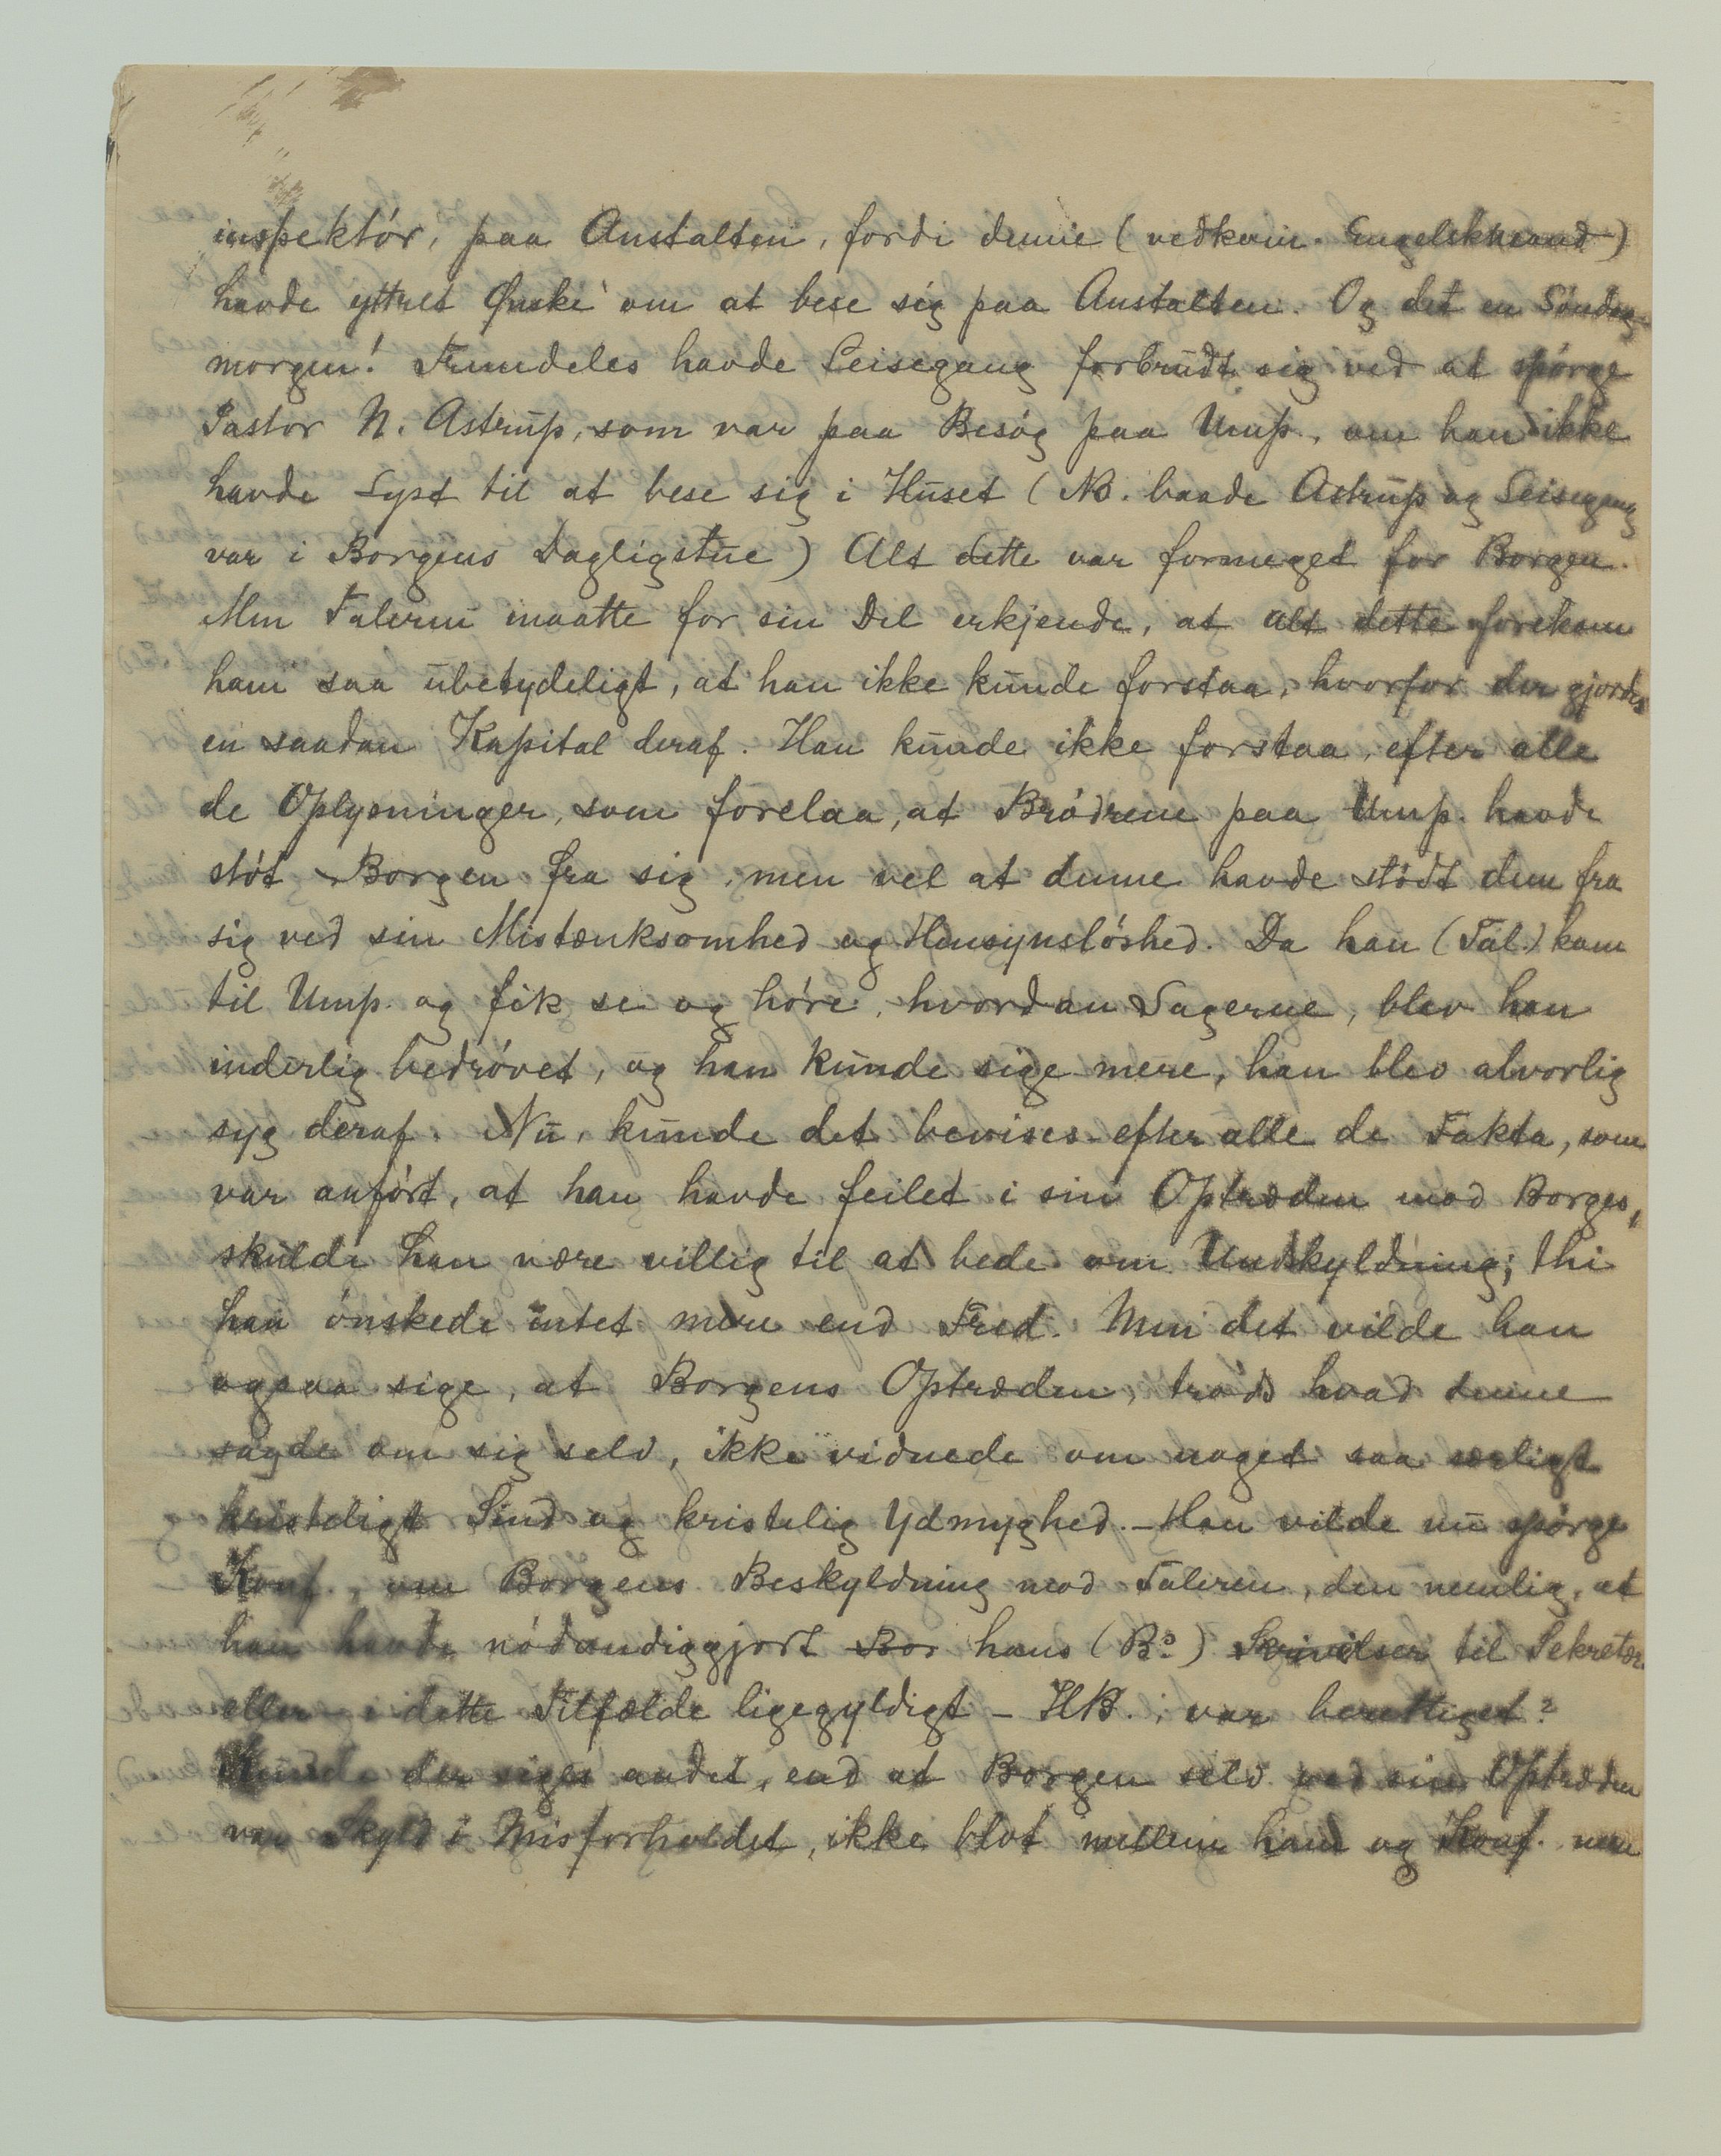 inspektör, paa Anstalten, fordi denne (vedkom. Engelskmand)
havde yttret Ønske om at bese sig paa Anstalten. Og det en Söndag-
morgen! Fremdeles havde Leisegang forbrudt sig ved at spörge
Pastor N. Astrup, som var paa Besög paa Ump., om han ikke
havde Lyst til at bese sig i Huset (NB. baade Astrup og Leisegang
var i Borgens Dagligstue) Alt dette var formeget for Borgen.
Men Taleren maatte for sin Del erkjende, at alt dette forekom
ham saa ubetydeligt, at han ikke kunde forstaa, hvorfor der gjordes
en saadan Kapital deraf. Han kunde ikke forstaa, efter alle
de Oplysninger, som forelaa, at Brödrene paa Ump. havde
stöt Borgen fra sig, men vel at denne havde stödt dem fra
sig ved sin Mistænksomhed og Hensynslöshed. Da han (Tal.) kom
til Ump. og fik se og höre, hvordan Sagerne, blev han
inderlig bedrövet, og han kunde sige mere, han blev alvorlig
syg deraf. Nu, kunde det bevises efter alle de Fakta, som
var anfört, at han havde feilet i sin Optræden mod Borgen,
skulde han være villig til at bede om Undskyldning; thi
han önskede intet mere end Fred. Men det vilde han
ogsaa sige, at Borgens Optræden, tröds hvad denne
sagde om sig selv, ikke vidnede om noget saa særligt
kristeligt Sind og kristelig Ydmyghed. – Han vilde nu spörge
Konf., om Borgens Beskyldning mod Taleren, den nemlig, at
han havde nödvendiggjort Bor hans (B's) Skrivelser til Sekretær
eller – i dette Tilfælde ligegyldigt – HB., var berettiget?
Kunde der siges andet, end at Borgen selv ved sin Optræden
var Skyld i Misforholdet, ikke blot mellem ham og Konf. men